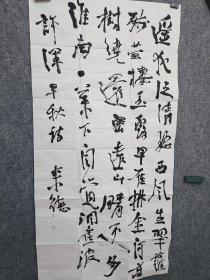 遥夜泛清瑟西风生翠萝
残萤栖玉露早雁拂金河高
树晓还密远山晴更多
淮南一叶下自觉洞庭波
许浑早秋诗 德